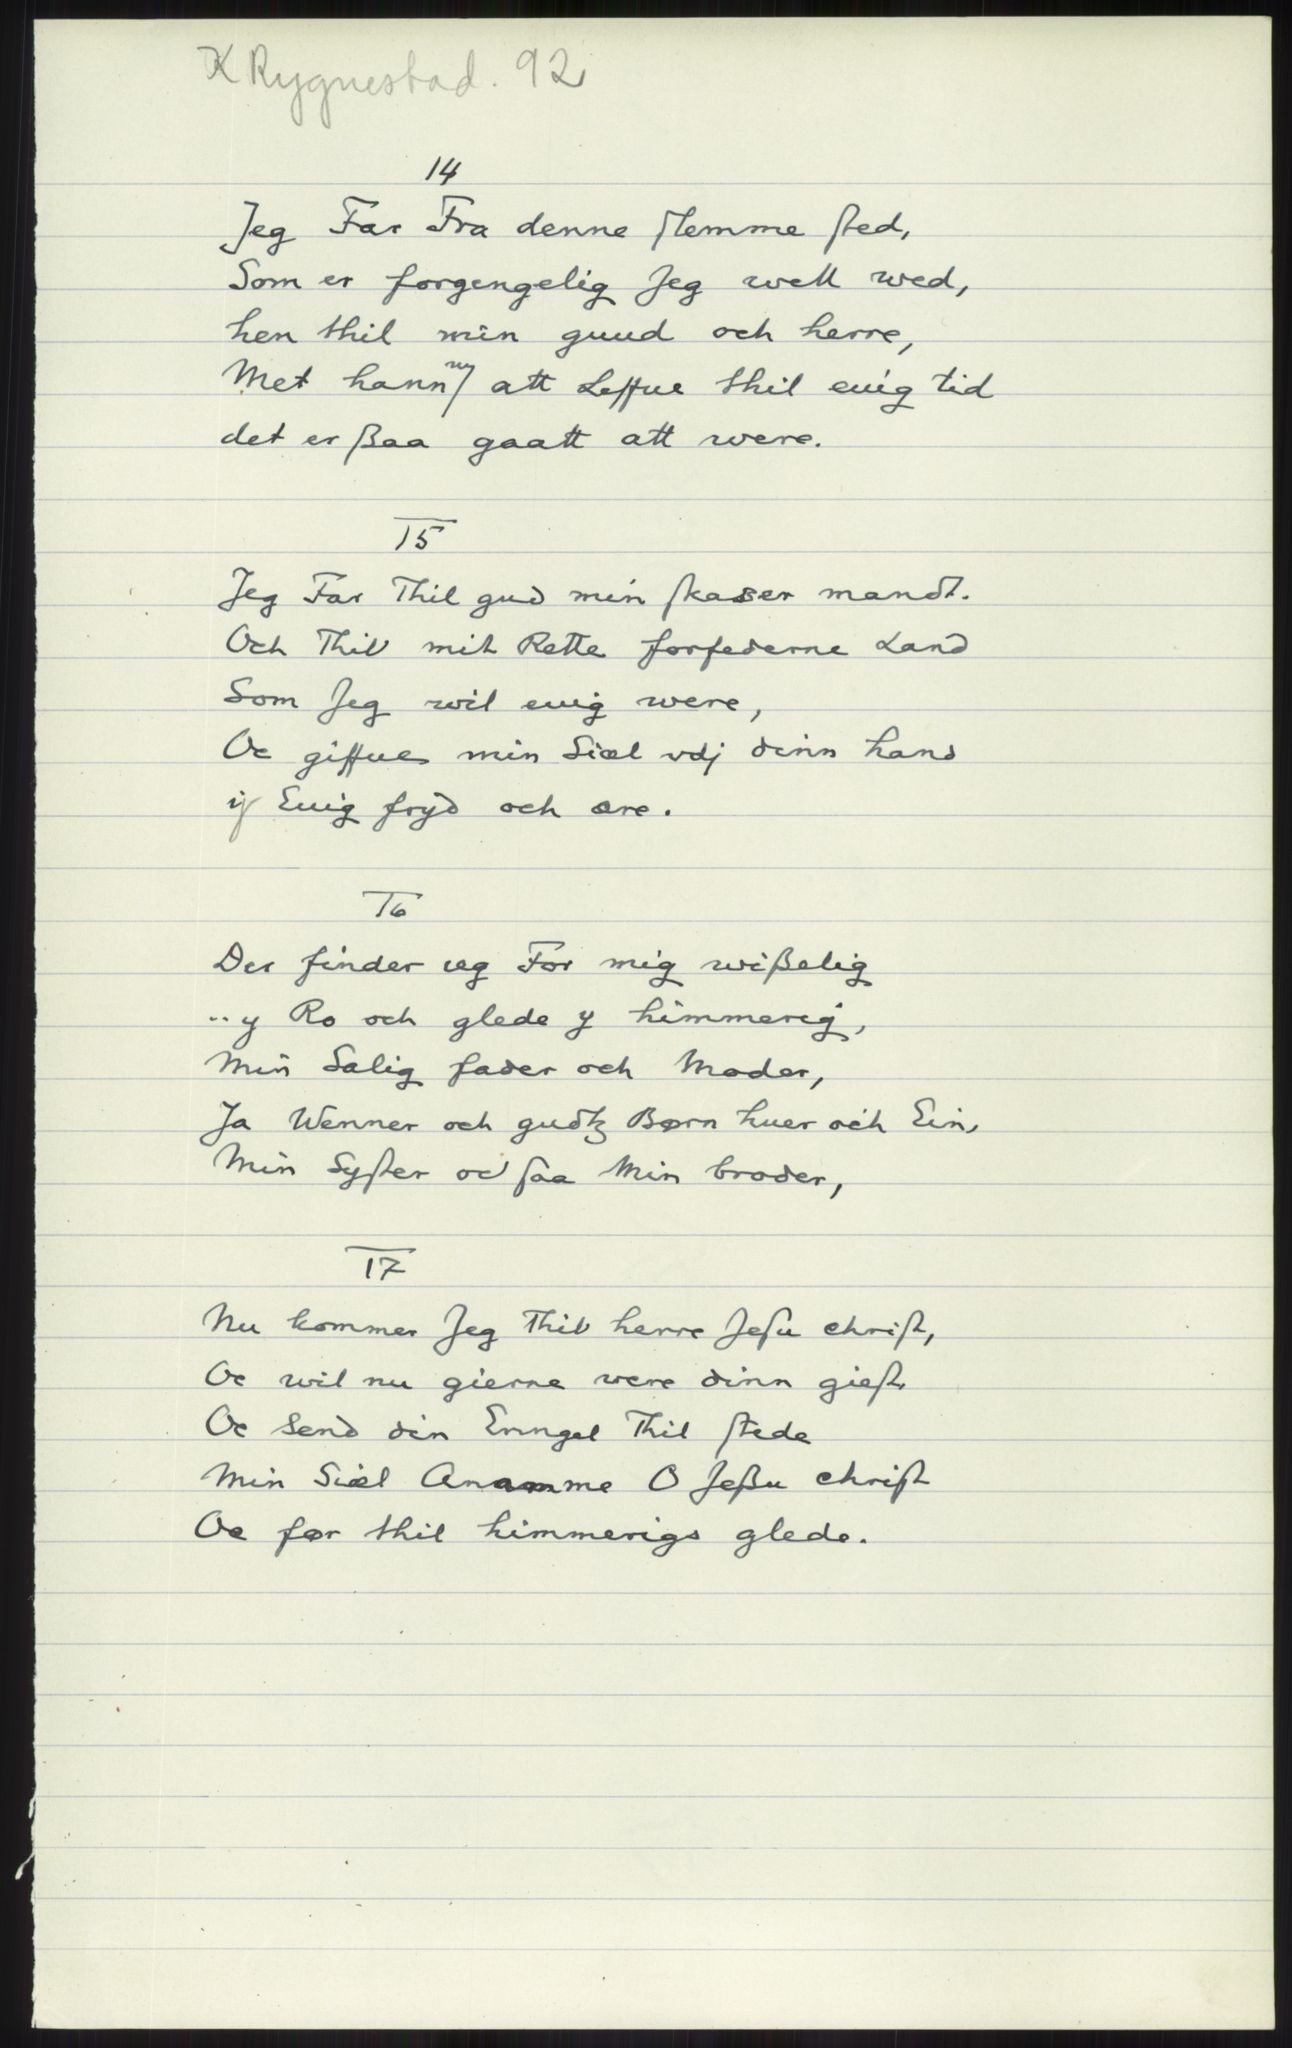 K Rygnestad. 92
14
Jeg Far Fra denne slemme sted,
Som er forgengelig Jeg well wed,
hen thil min guud och herre,
Met hann att Leffue thil euig tid
det er ßaa gaatt att were.
15
Jeg Far Thil gud min skaber mandt.
Och Thil mit Rette forfederne Land
Som Jeg wil euig were,
Oc giffue min Siæl vdj dinn hand
ij Euig fryd och ære.
16
Der finder ieg For mig wißelig
.. y Ro och glede y himmerig,
Min Salig fader och Moder,
Ja Wenner och gudtz Børn huer och Ein,
Min Syster oc saa Min broder,
17
Nu kommer Jeg Thil herre Jesu christ,
Oc wil nu gierne were dinn giest,
Oc Send din Enngel Thil stede
Min Siæl Anamme O Jeßu christ
Oc før thil himmerigs glede.